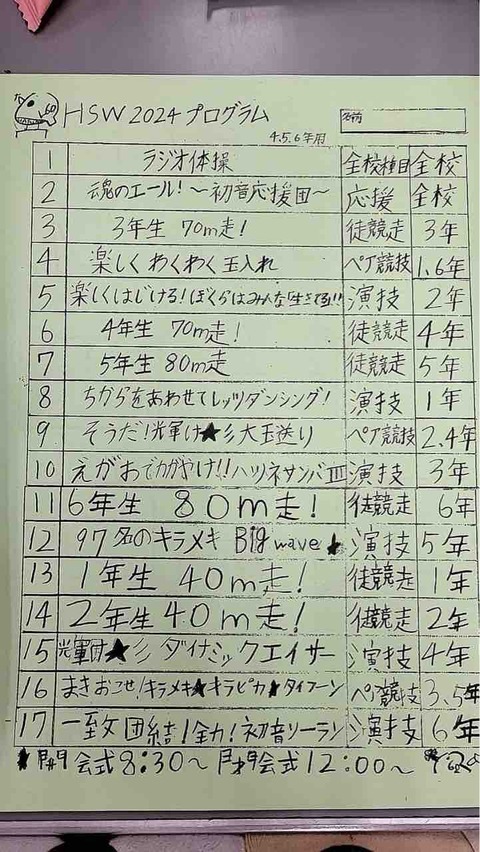 HSW 2024 プログラム
4.5.6年用
名前
1 ラジオ体操 全校種目 全校
2 魂のエール!〜初音応援団〜 応援 全校
3 3年生 70m走! 徒競走 3年
4 楽しくわくわく玉入れ ペア競技 1.6年
5 楽しくはじける!ぼくらはみんな「生きてる!! 演技 2年
6 4年生 70m走! 徒競走 4年
7 5年生 80m走 徒競走 5年
8 ちからをあわせてレッツダンシング! 演技 1年
9 そうだ!光輝け★彡大玉送り ペア競技 2.4年
10 えがおでかがやけ!!ハツネサンバⅢ 演技 3年
11 6年生 80m走! 徒競走 6年
12 97名のキラメキ Big wave 演技 5年
13 1年生 40m走! 徒競走 1年
14 2年生 40m走! 徒競走 2年
15 光輝け★彡 ダイナミックエイサー 演技 4年
16 まきおこせ!キラメキ★キラピカ★タイフーン ペア競技 3.5年
17 一致団結!全力!初音ソーラン 演技 6年
開会式8:30〜 閉会式12:00〜